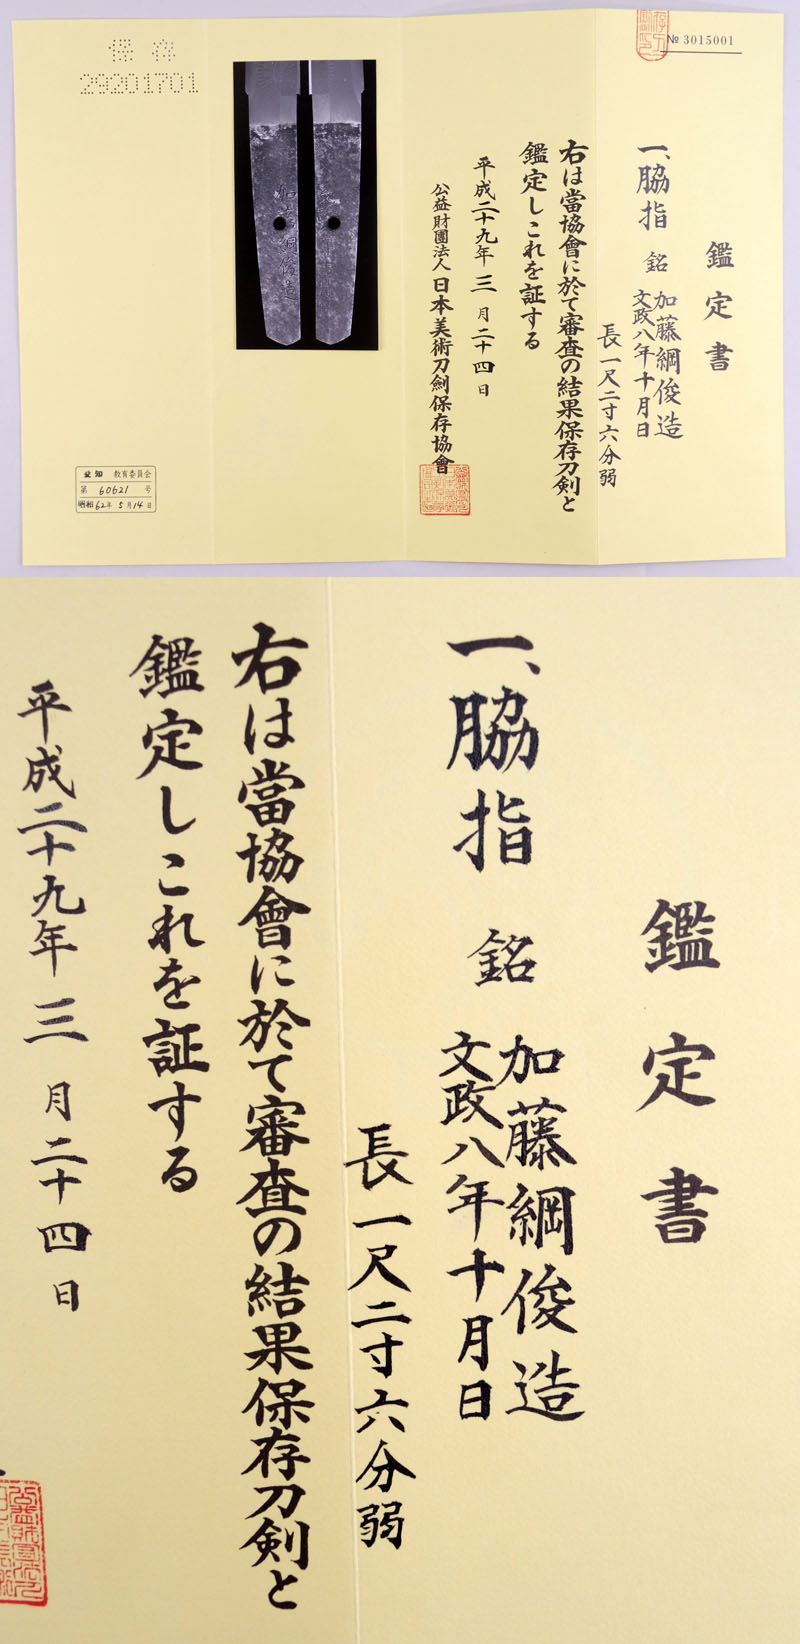 № 3015001
鑑定書
一、脇指 銘 加藤綱俊造
文政八年十月日
長一尺二寸六分弱
右は當協會に於て審査の結果保存刀剣と
鑑定しこれを証する
平成二十九年三月二十四日
公益財團法人日本美術刀劍保存協會
加藤綱俊造
保存
29201701
愛知 教育委員会
第 60621 号
昭和62年5月14日
鑑定書
一、脇指 銘 加藤綱俊造
文政八年十月日
長一尺二寸六分弱
右は當協會に於て審査の結果保存刀剣と
鑑定しこれを証する
平成二十九年三月二十四日